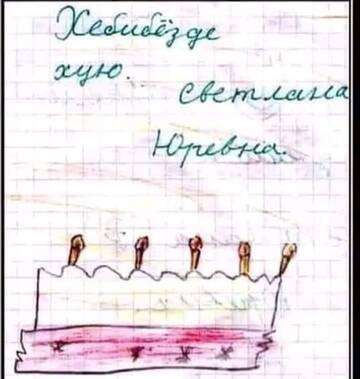 Хебибёзде
хую.
светлана
Юревна.